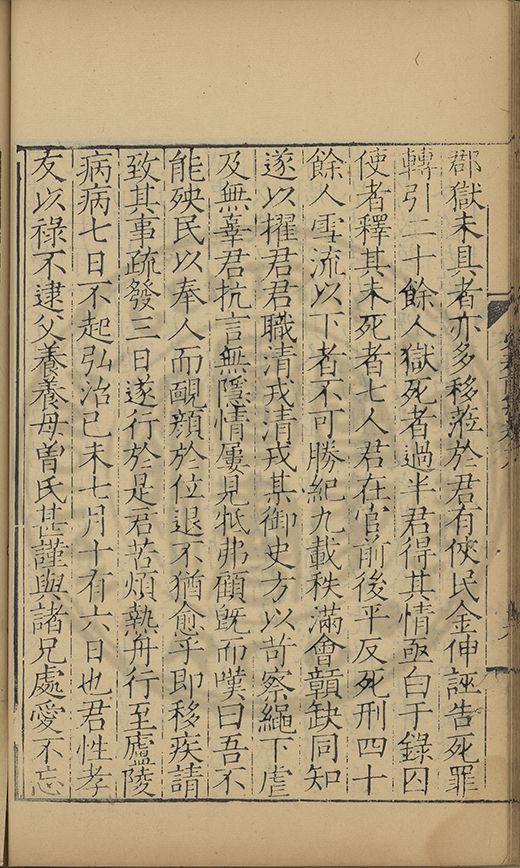 郡獄未具者亦多移蒞於君有俠民金伸誣告死罪
轉引二十餘人獄死者過半君得其情亟白于錄囚
使者釋其未死者七人君在官前後平反死刑四十
餘人雪流以下者不可勝紀九載秩滿會贛缺同知
遂以擢君君職清戎清戎某御史方以苛察繩下虐
及無辜君抗言無隱情屢見牴弗顧既而嘆曰吾不
能殃民以奉人而靦顏於位退不猶愈乎即移疾請
致其事疏發三日遂行於是君苦煩熱舟行至廬陵
病病七日不起弘治己未七月十有六日也君性孝
友以祿不逮父養養母曾氏甚謹與諸兄處愛不忘